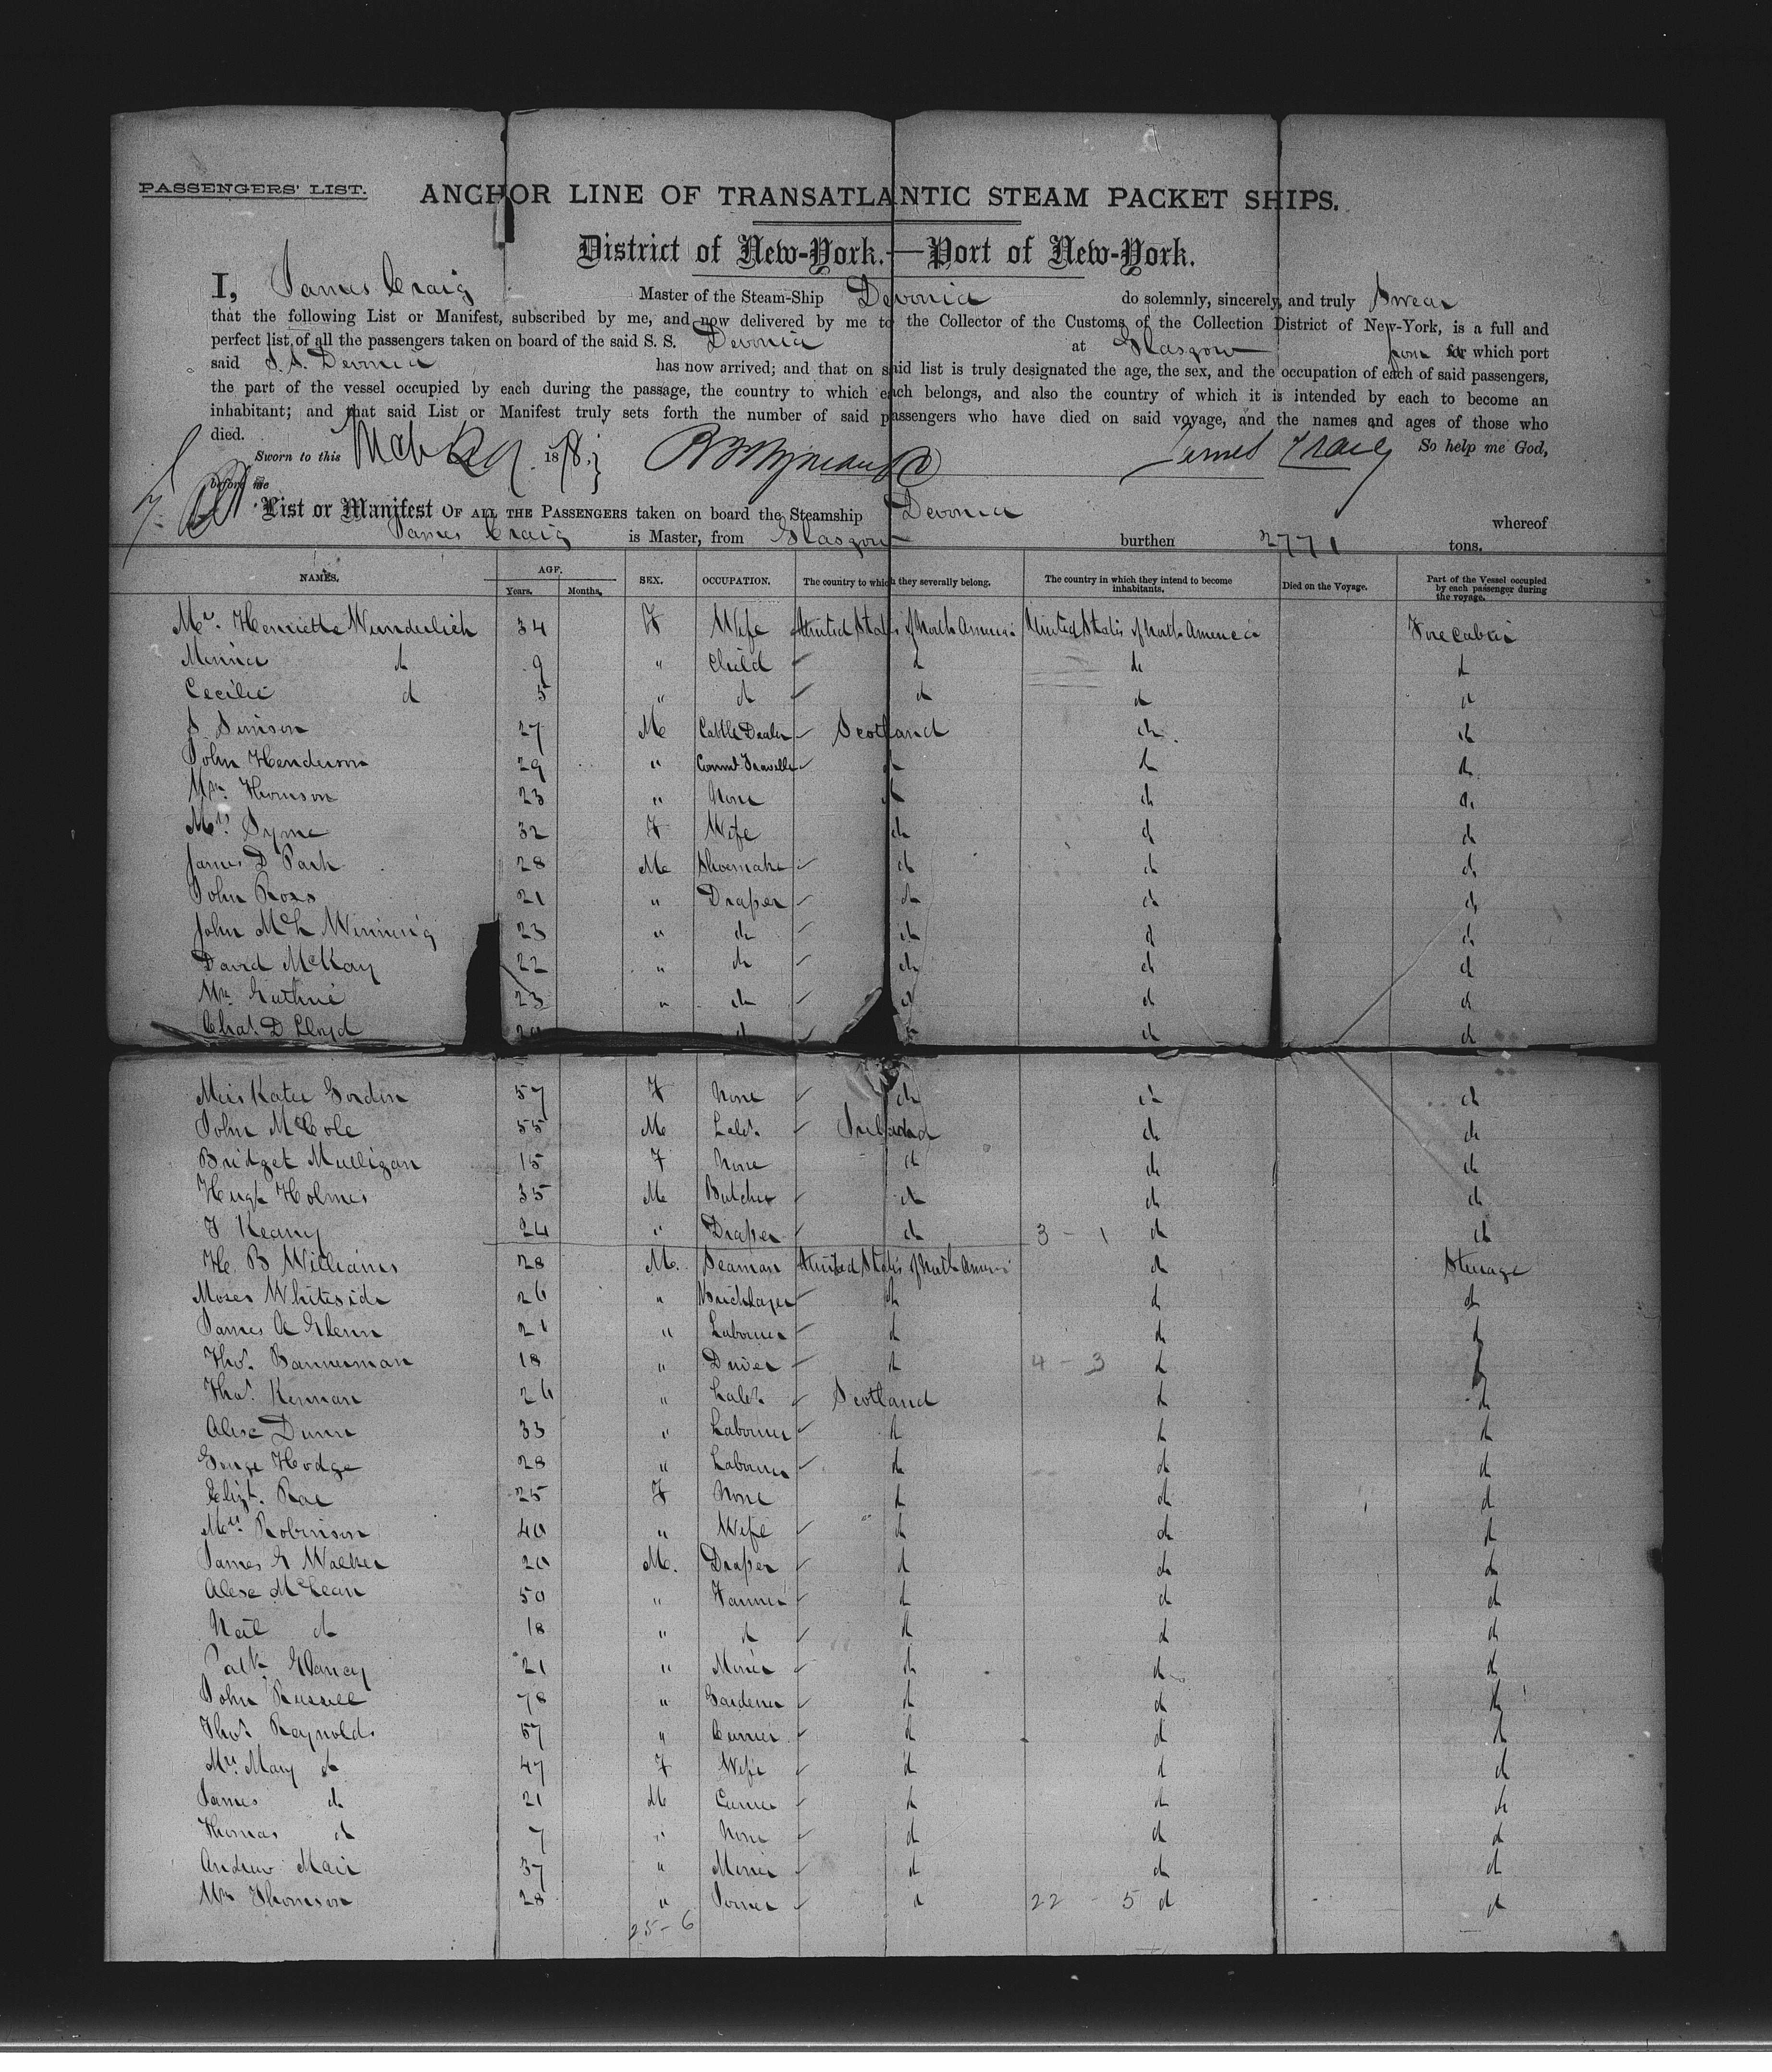 PASSENGERS' LIST.
ANCHOR LINE OF TRANSATLANTIC STEAM PACKET SHIPS.
District of New-York.—Port of New-York.
I, James Craig Master of the Steam-Ship Devonia do solemnly, sincerely, and truly Swear
that the following List or Manifest, subscribed by me, and now delivered by me to the Collector of the Customs of the Collection District of New-York, is a full and
perfect list of all the passengers taken on board of the said S. S. Devonia at Glasgow from which port
said S.S. Devonia has now arrived; and that on said list is truly designated the age, the sex, and the occupation of each of said passengers,
the part of the vessel occupied by each during the passage, the country to which each belongs, and also the country of which it is intended by each to become an
inhabitant; and that said List or Manifest truly sets forth the number of said passengers who have died on said voyage, and the names and ages of those who
died.
Sworn to this Mch 187 James Craig So help me God,
before me
List or Manifest OF ALL THE PASSENGERS taken on board the Steamship Devonia whereof
James Craig is Master, from Glasgow burthen 2771 tons.
NAMES. AGE. Years. Months. SEX. OCCUPATION. The country to which they severally belong. The country in which they intend to become inhabitants. Died on the Voyage. Part of the Vessel occupied by each passenger during the voyage.
Mrs. Henriette Wunderlich 34 F Wife United States of North America United States of North America Fore Cabin
Minnie do 9 " Child do do do
Cecilie do 5 " do do do do
S. Simison 27 M Cattle Dealer Scotland do do
John Henderson 29 " Comml Traveller do do do
Wm Thomson 23 " None do do do
Mrs Syme 32 F Wife do do do
James D Park 28 M Shoemaker do do do
John Ross 21 " Draper do do do
John McL Winning 23 " do do do do
David McKay 22 " do do do do
Wm Guthrie 23 " do do do do
Chas. D Lloyd do do do
Miss Katie Gordon 57 F None do do do
John McCole 55 M Labr. Ireland do do
Bridget Mulligan 15 F None do do do
Hugh Holmes 35 M Butcher do do do
F Keany 24 " Draper do 3 - 1 do do
H. B Williams 28 M. Seaman United States of North America do Steerage
Moses Whiteside 26 " Bricklayer do do do
James A Glenn 21 " Labourer do do do
Thos. Bannerman 18 " Driver do 4 - 3 do do
Thos. Kennan 26 " Labr. Scotland do do
Alexr Dunn 33 " Labourer do do do
George Hodge 28 " Labourer do do do
Elizt. Rae 25 F None do do do
Mrs Robinson 40 " Wife do do do
James G Walker 20 M. Draper do do do
Alexr McLean 50 " Farmer do do do
Neil do 18 " do do do do
Patk Glancy 21 " Miner do do do
John Russell 78 " Gardener do do do
Thos Reynolds 57 " Currier do do do
Mrs. Mary do 47 F Wife do do do
James do 21 M Currier do do do
Thomas do 7 " None do do do
Andrew Mair 37 " Miner do do do
Wm Thomson 28 " Joiner do 22 - 5 do do
25 - 6